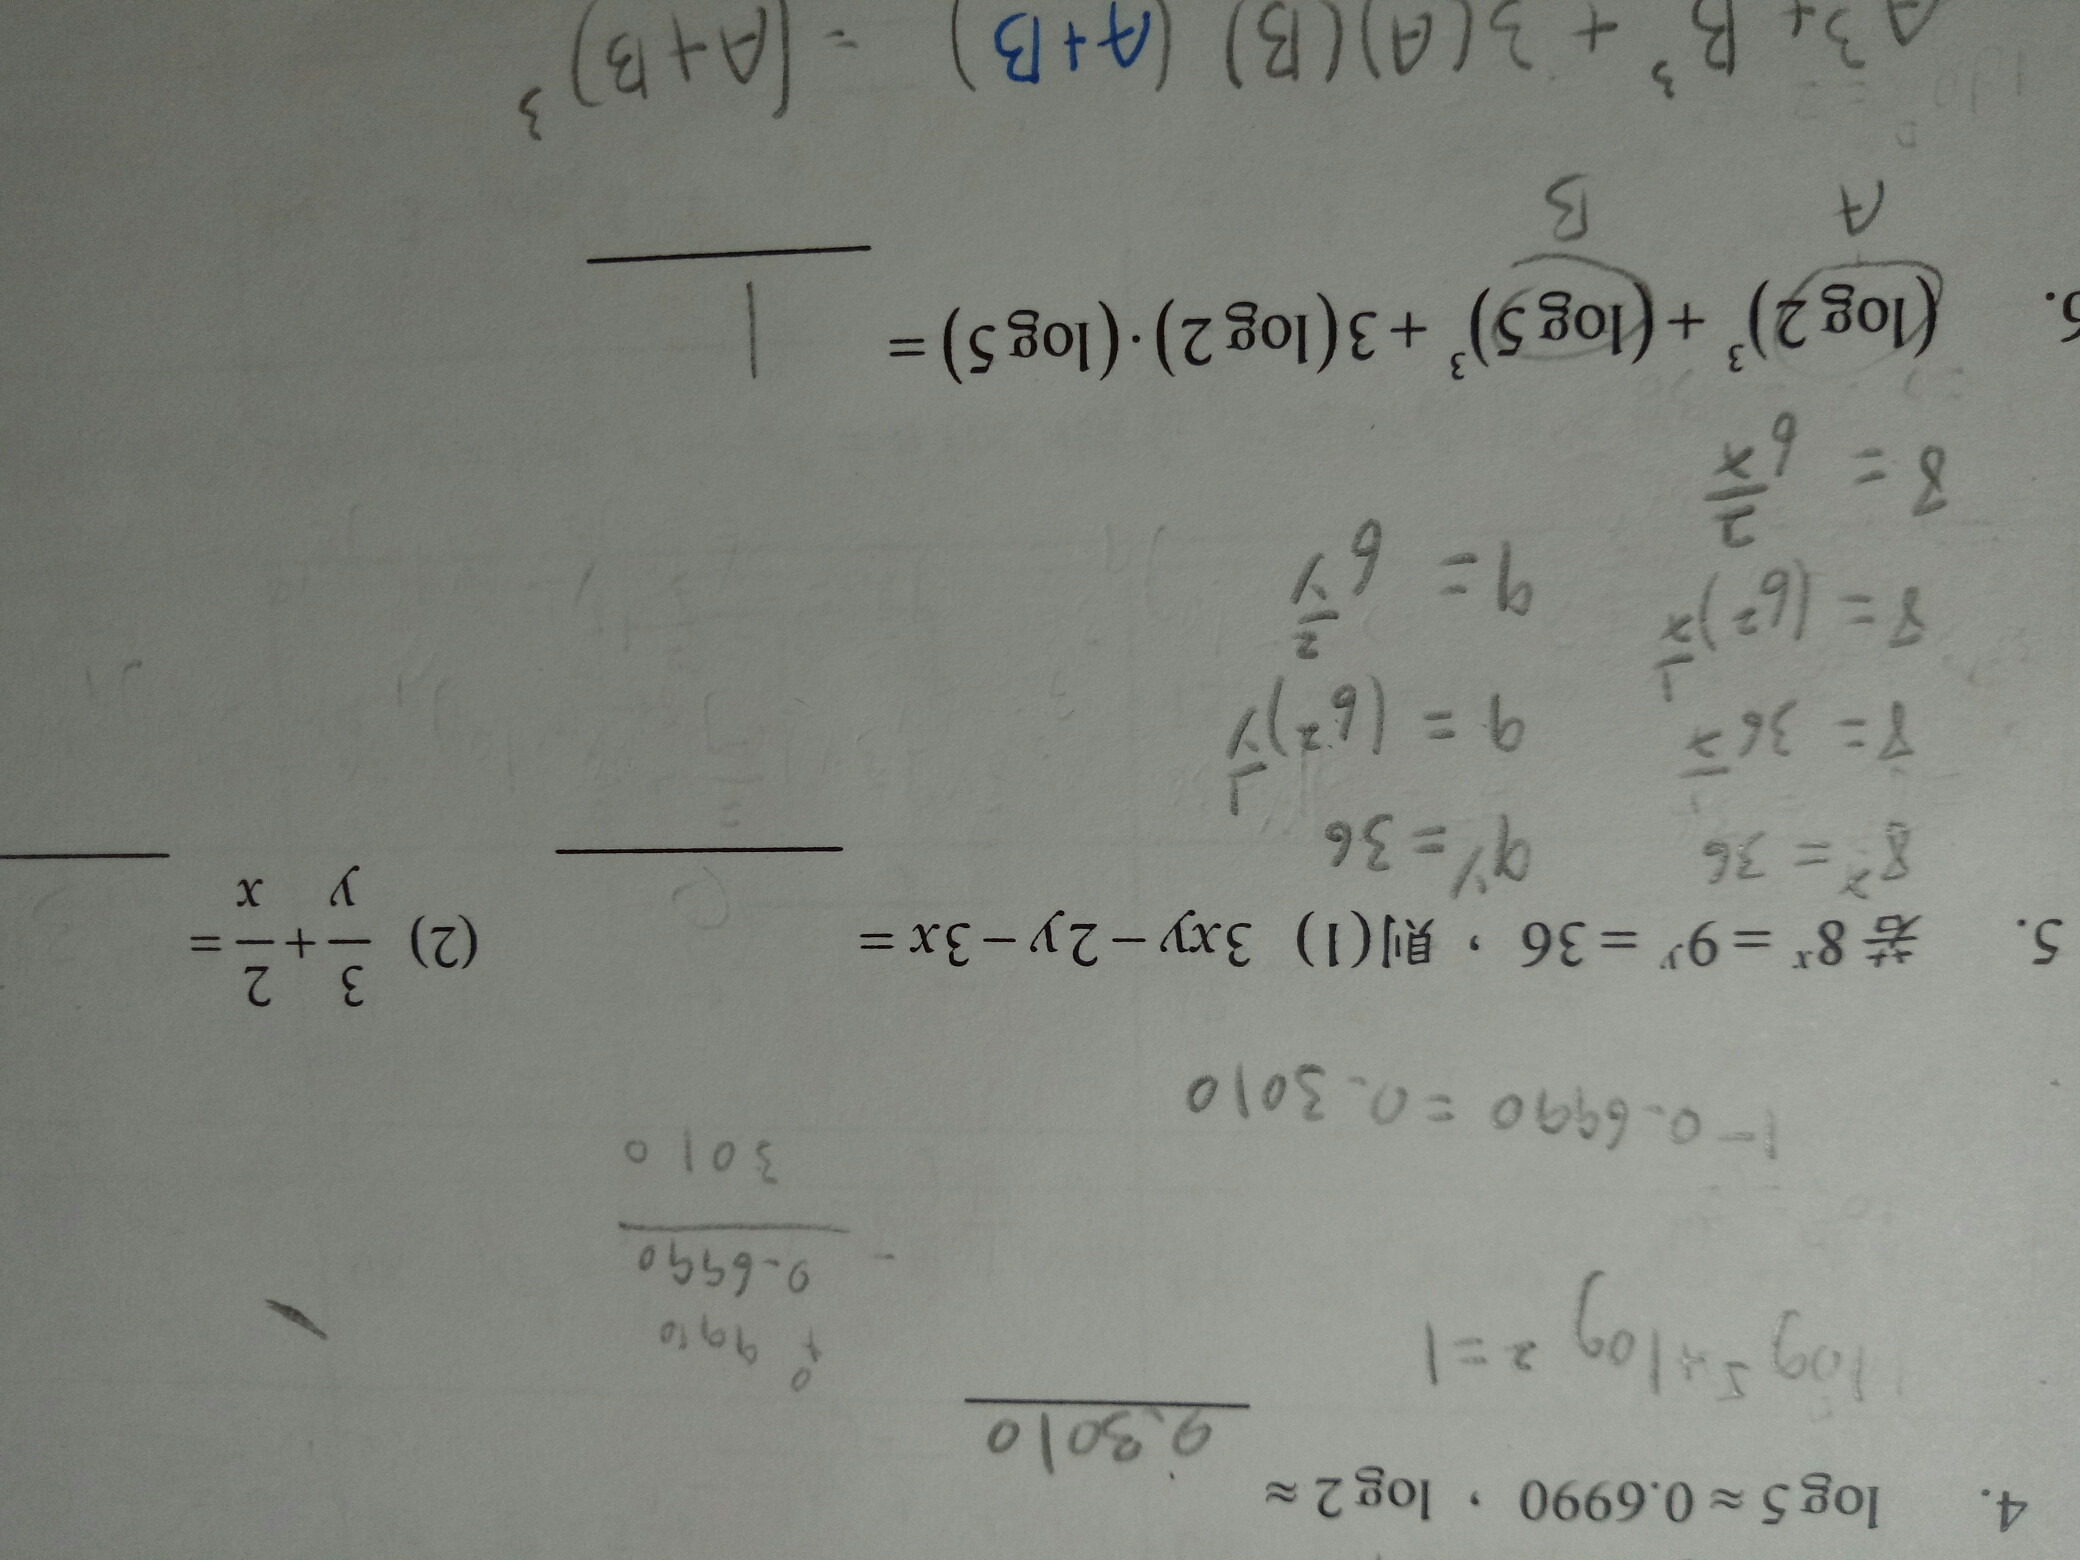 4. log 5 ≈ 0.6990，log 2 ≈ 0.3010
log 5 + log 2 = 1
0
+ 9910
- 0.6990
3010
1 - 0.6990 = 0.3010
5. 若 8^x = 9^y = 36，則(1) 3xy − 2y − 3x = (2) 3/y + 2/x =
8^x = 36 9^y = 36
8 = 36^(1/x) 9 = (6²)^(1/y)
8 = (6²)^(1/x) 9 = 6^(2/y)
8 = 6^(2/x)
6. (log 2)³ + (log 5)³ + 3(log 2)·(log 5) = 1
A B
A³ + B³ + 3(A)(B)(A+B) = (A+B)³